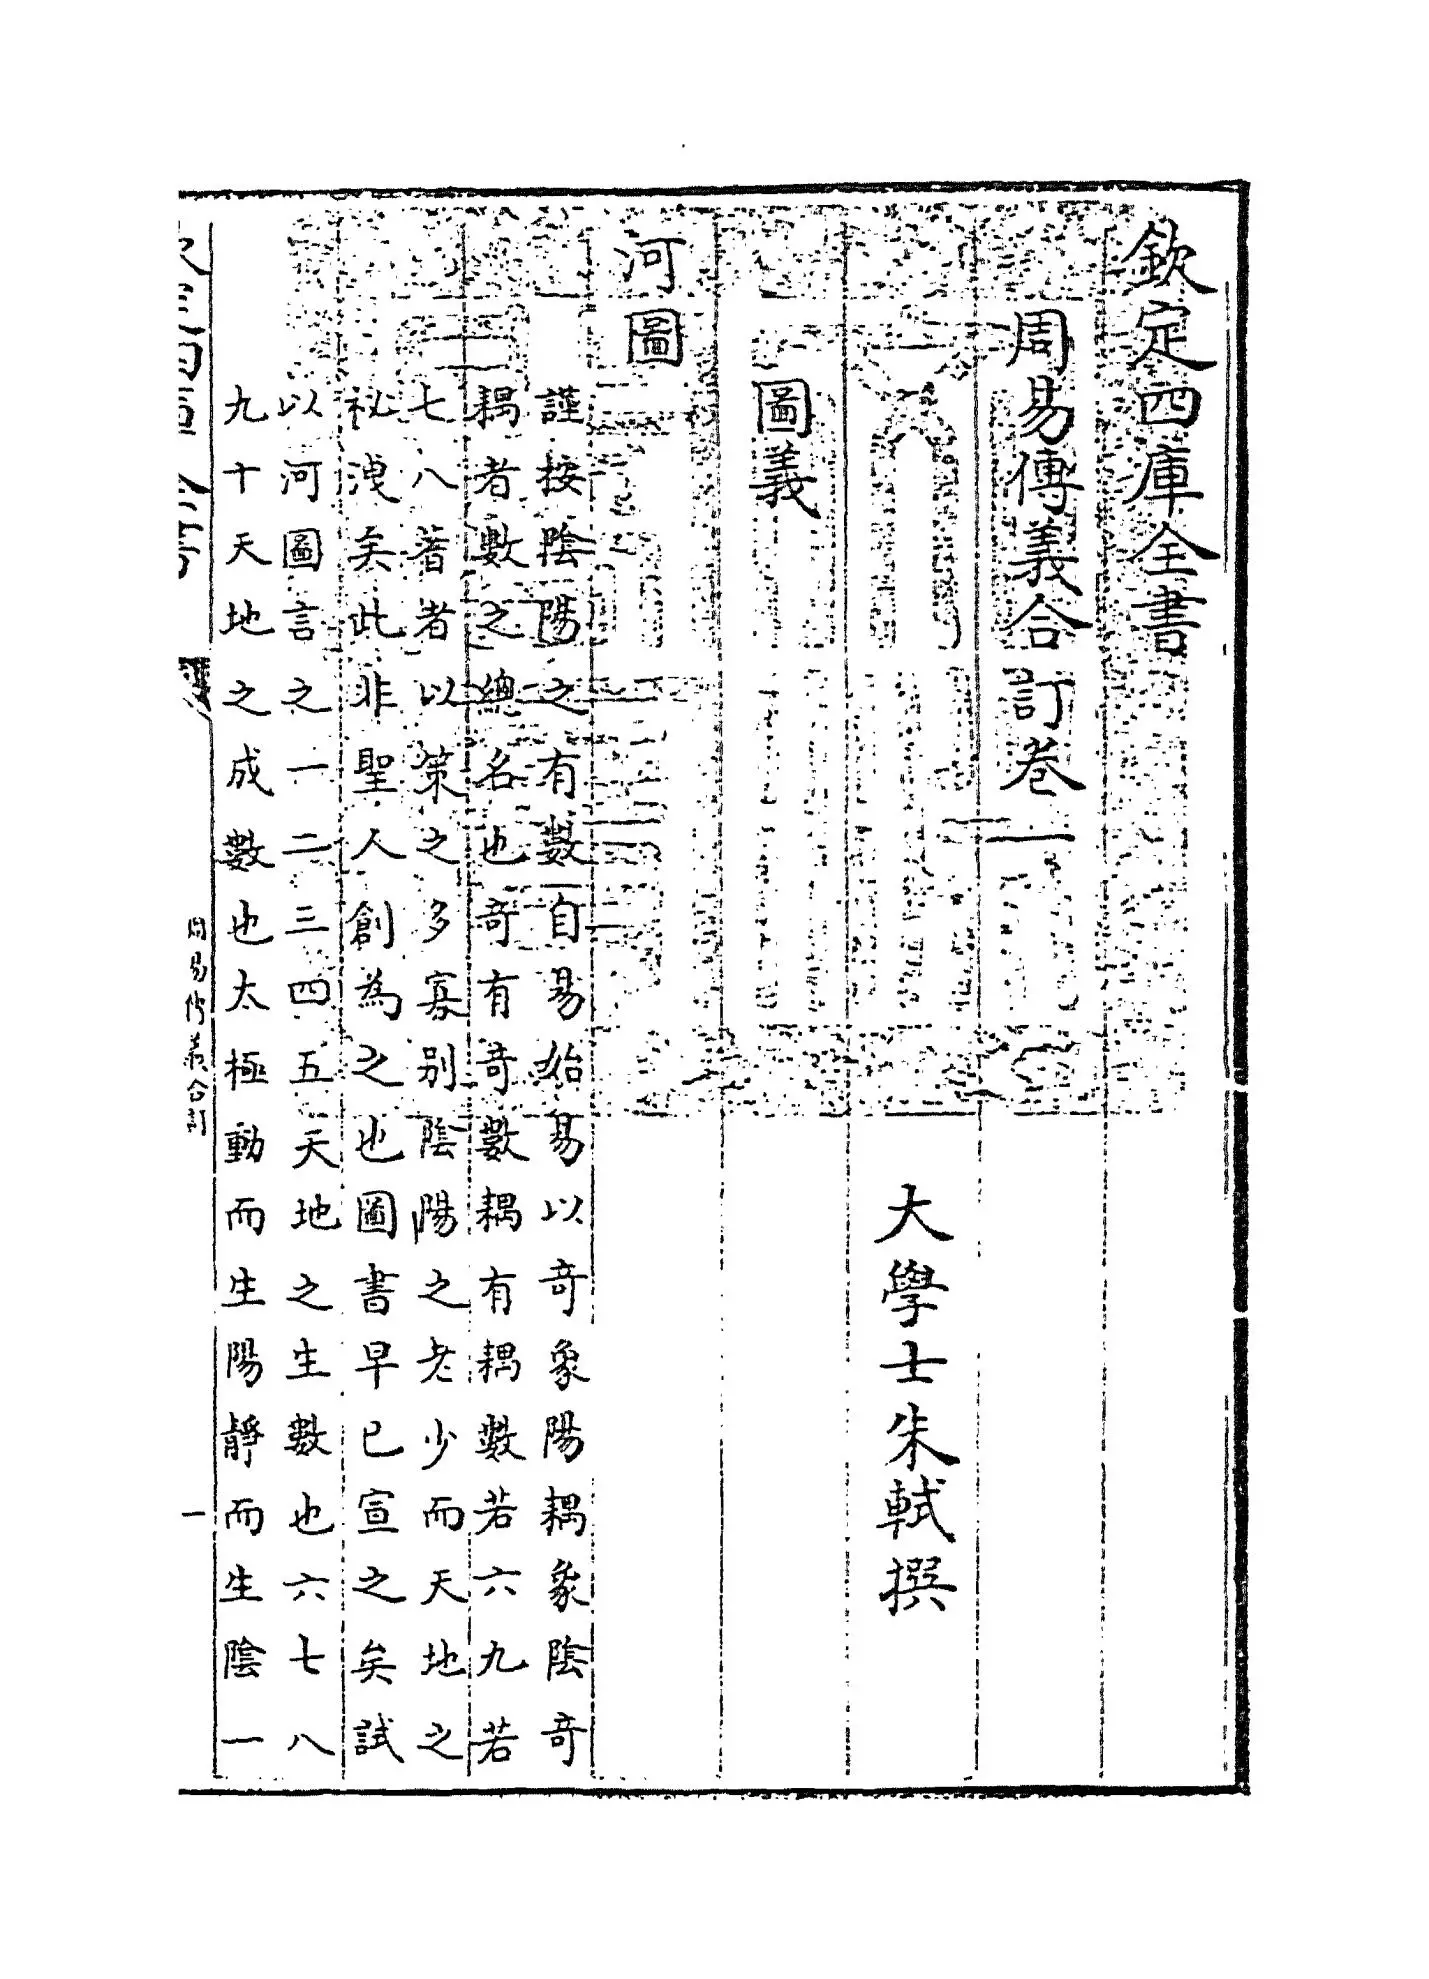 欽定四庫全書
周易傳義合訂卷一
大學士朱軾撰
圖義
河圖
謹按陰陽之有數自易始易以奇象陽耦象陰奇
耦者數之總名也奇有奇數耦有耦數若六九若
七八蓍者以策之多寡別陰陽之老少而天地之
祕洩矣此非聖人創為之也圖書早已宣之矣試
以河圖言之一二三四五天地之生數也六七八
九十天地之成數也太極動而生陽靜而生陰一
周易傳義合訂
一